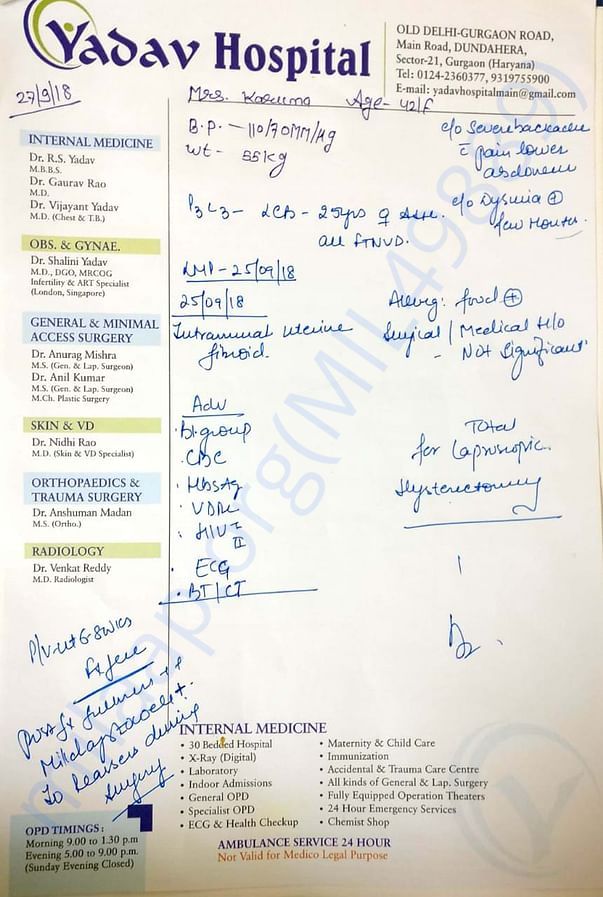 Yadav Hospital
OLD DELHI-GURGAON ROAD,
Main Road, DUNDAHERA,
Sector-21, Gurgaon (Haryana)
Tel: 0124-2360377, 9319755900
E-mail: yadavhospitalmain@gmail.com
27/9/18
Mrs. Karuna Age- 42/F
B.P. - 110/70MM/Hg
Wt - 55Kg
c/o Severe backache
c̄ pain lower
abdomen
P3L3 - LCB - 25yrs
all FTNVD.
c/o Dysuria +
few Months.
LMP - 25/09/18
25/09/18
Intramural uterine
fibroid.
Allerg: food +
Surgical / Medical H/o
- Not Significant
Adv
. Bl. group
. CBC
. HbsAg
. VDRL
. HIV I
II
. ECG
. BT/CT
Total
for Laproscopic
Hysterectomy
INTERNAL MEDICINE
Dr. R.S. Yadav
M.B.B.S.
Dr. Gaurav Rao
M.D.
Dr. Vijayant Yadav
M.D. (Chest & T.B.)
OBS. & GYNAE.
Dr. Shalini Yadav
M.D., DGO, MRCOG
Infertility & ART Specialist
(London, Singapore)
GENERAL & MINIMAL
ACCESS SURGERY
Dr. Anurag Mishra
M.S. (Gen. & Lap. Surgeon)
Dr. Anil Kumar
M.S. (Gen. & Lap. Surgeon)
M.Ch. Plastic Surgery
SKIN & VD
Dr. Nidhi Rao
M.D. (Skin & VD Specialist)
ORTHOPAEDICS &
TRAUMA SURGERY
Dr. Anshuman Madan
M.S. (Ortho.)
RADIOLOGY
Dr. Venkat Reddy
M.D. Radiologist
P/V - ut 6-8 wks
post fx fullness ++
Mild
To during
Surgery
INTERNAL MEDICINE
• 30 Bedded Hospital
• X-Ray (Digital)
• Laboratory
• Indoor Admissions
• General OPD
• Specialist OPD
• ECG & Health Checkup
• Maternity & Child Care
• Immunization
• Accidental & Trauma Care Centre
• All kinds of General & Lap. Surgery
• Fully Equipped Operation Theaters
• 24 Hour Emergency Services
• Chemist Shop
AMBULANCE SERVICE 24 HOUR
Not Valid for Medico Legal Purpose
OPD TIMINGS :
Morning 9.00 to 1.30 p.m
Evening 5.00 to 9.00 p.m.
(Sunday Evening Closed)
milaap.org(MIL49839)